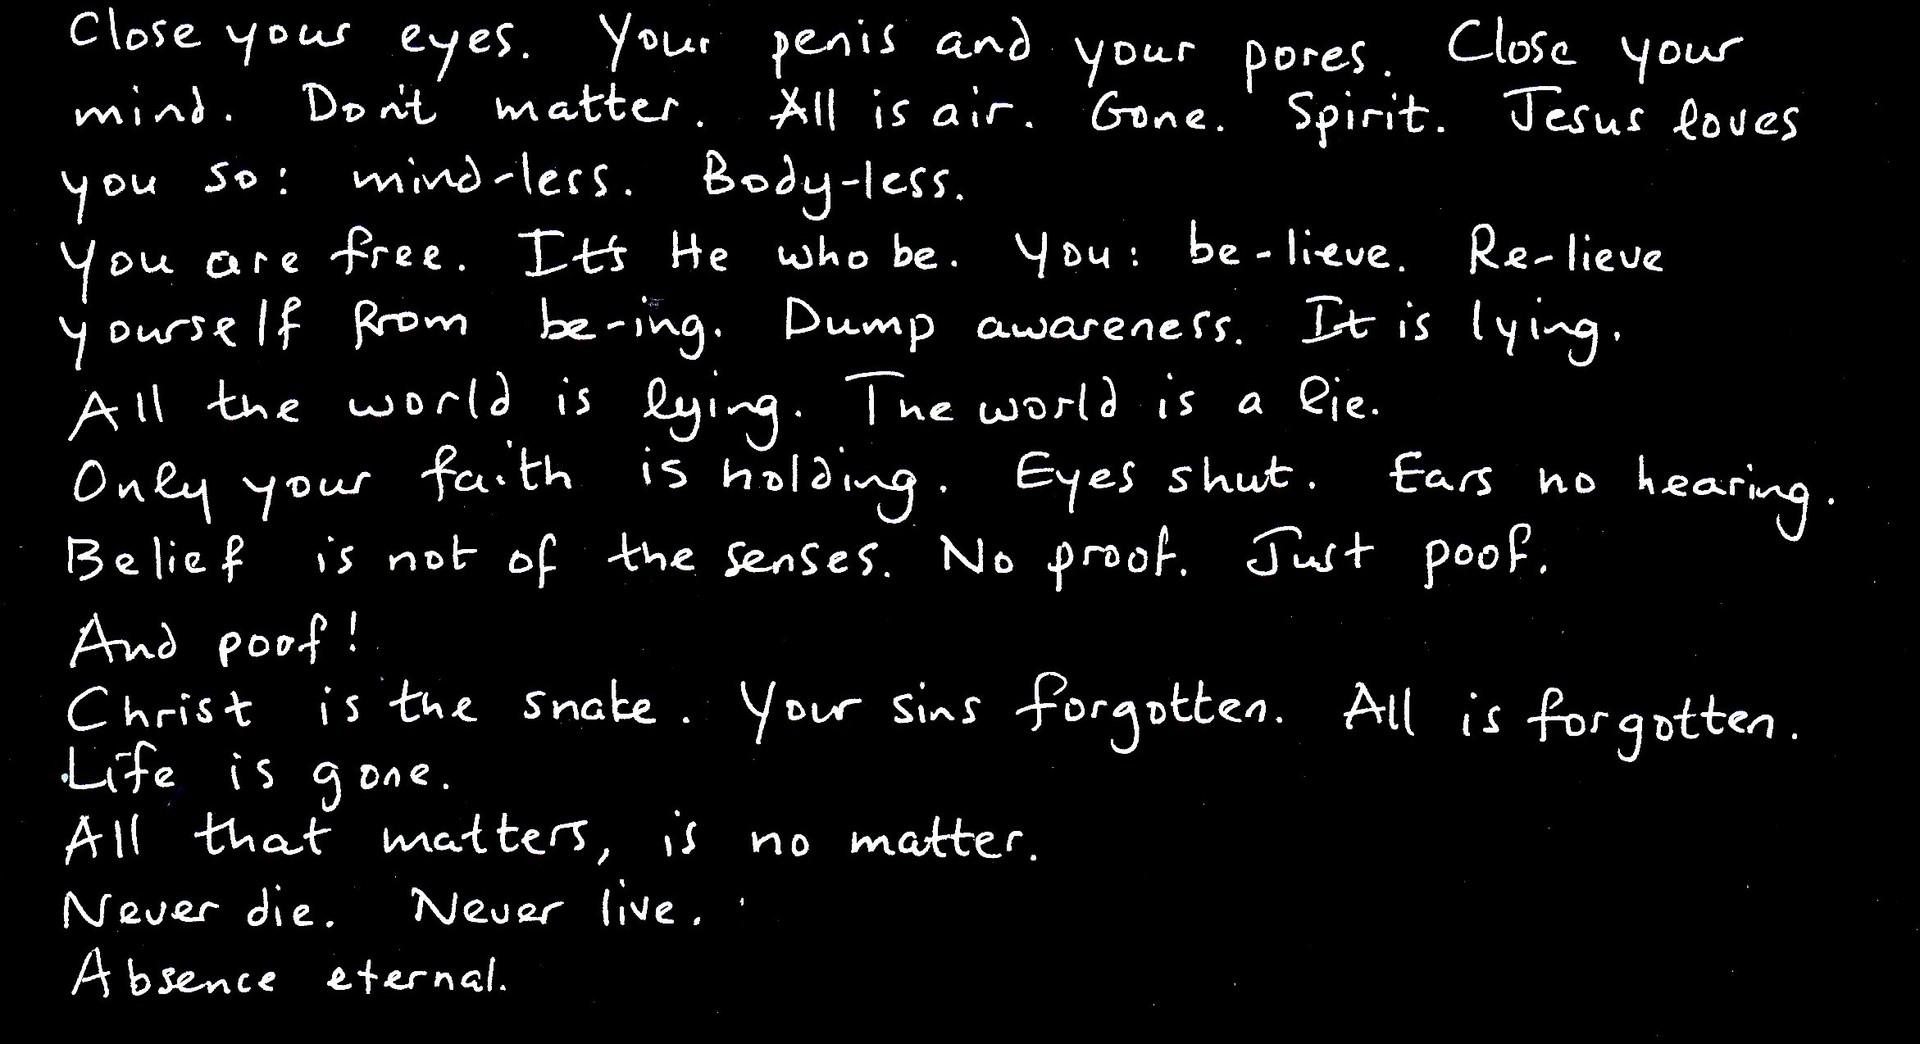 Close your eyes. Your penis and your pores. Close your
mind. Don't matter. All is air. Gone. Spirit. Jesus loves
you so: mind-less. Body-less.
You are free. It's He who be. You: be-lieve. Re-lieve
yourself from be-ing. Dump awareness. It is lying.
All the world is lying. The world is a lie.
Only your faith is holding. Eyes shut. Ears no hearing.
Belief is not of the senses. No proof. Just poof.
And poof!
Christ is the snake. Your sins forgotten. All is forgotten.
Life is gone.
All that matters, is no matter.
Never die. Never live.
Absence eternal.